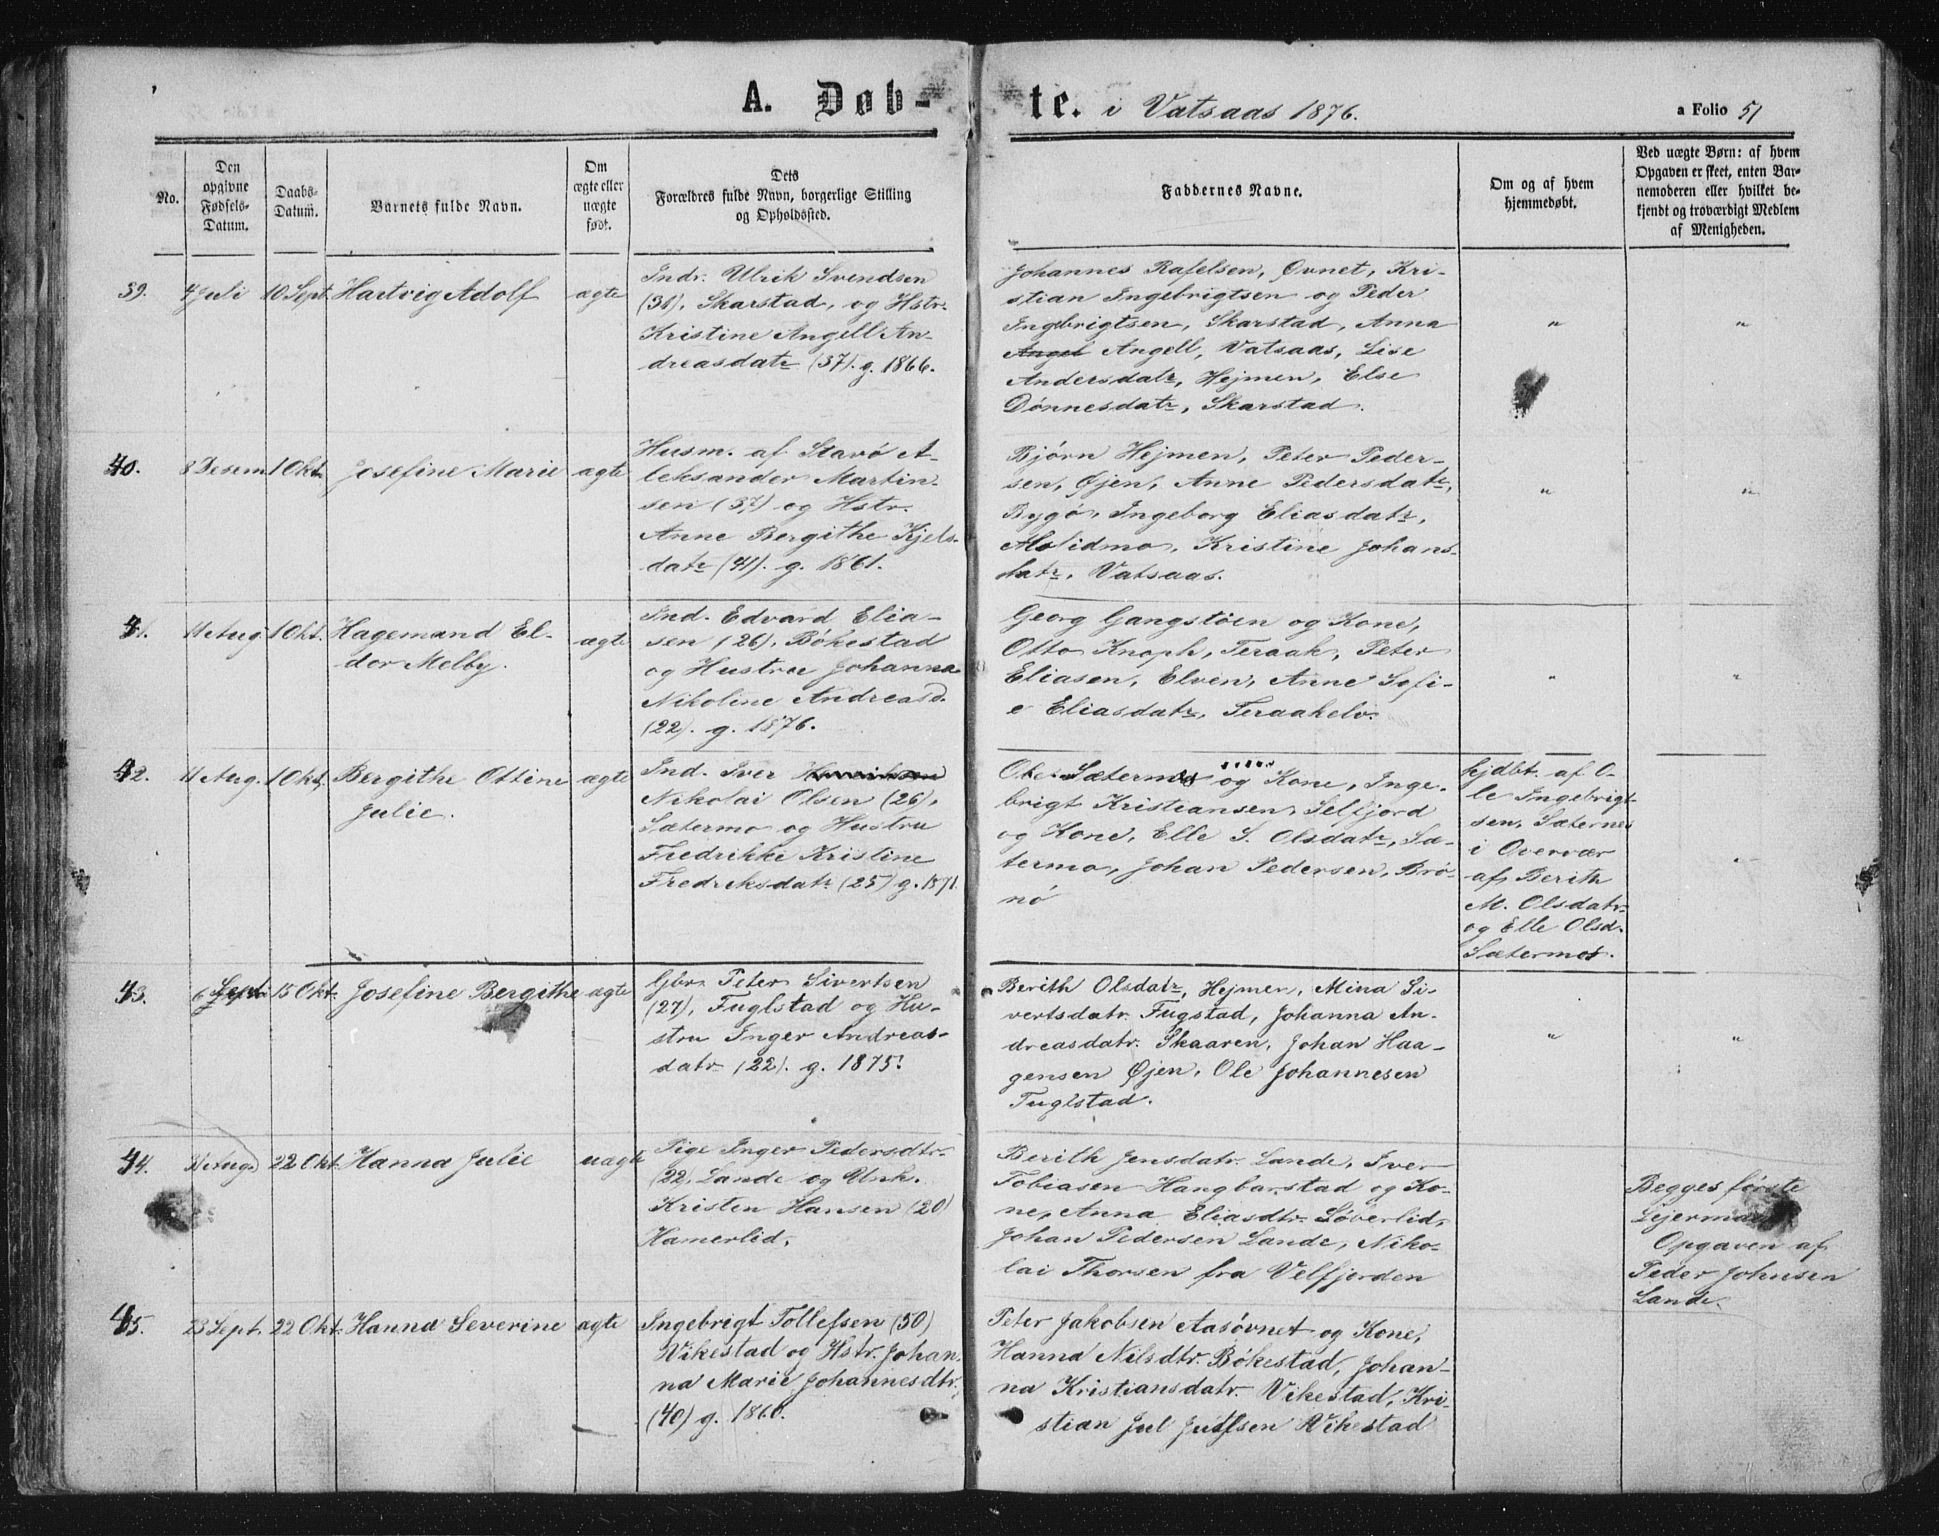 A. Døb- te. i Vatsaas 1876. a Folio 51
No.
Den opgivne Fødsels-Datum.
Daabs-Datum.
Barnets fulde Navn.
Om ægte eller uægte født.
Dets Forældres fulde Navn, borgerlige Stilling og Opholdssted.
Faddernes Navne.
Om og af hvem hjemmedøbt.
Ved uægte Børn: af hvem Opgaven er skeet, enten Barnemoderen eller hvilket bekjendt og troværdigt Medlem af Menigheden.
39. 4 Juli 10 Sept. Hartvig Adolf ægte
Indr. Ulrik Svendsen
(31), Skarstad, og Hstr.
Kristine Angell An-
dreasdatr (37). g. 1866.
Johannes Rafelsen, Øvnet, Kri-
stian Ingebrigtsen og Peder
Ingebrigtsen, Skarstad, Anna
Angel Angell, Vatsaas, Lise
Andersdatr, Hejmen, Else
Dønnesdatr, Skarstad.
" "
40. 8 Desem. 1 Okt. Josefine Marie ægte
Husm. af Stavø A-
leksander Martin-
sen (37) og Hstr.
Anne Bergithe Kjels-
datr (41). g. 1861.
Bjørn Hejmen, Peter Peder-
sen, Øjen, Anne Pedersdatr,
Bygø, Ingeborg Eliasdatr,
Kristine Johans-
datr, Vatsaas.
" "
41. 11 Aug. 1 Okt. Hagemand El-
dor Melby. ægte
Ind. Edvard Elia-
sen (26), Bøkestad
og Hustru Johanna
Nikoline Andreasd.
(22). g. 1876.
Georg Gangstøen og Kone,
Otto Knoph, Teraak, Peter
Eliasen, Elven, Anne Sofi-
e Eliasdatr, Teraakelv.
" "
42. 11 Aug. 1 Okt. Bergithe Ottine
Julie. ægte
Ind. Iver Henriksen
Nikolai Olsen (26),
Sætermo og Hustru
Fredrikke Kristine
Fredriksdatr (25) g. 1871.
Ole Sætermo og Kone, Inge-
brigt Kristiansen, Selfjord
og Kone, Elle S. Olsdatr, Sæ-
termo, Johan Pedersen, Brø-
nø
hjdbt. af O-
le Ingebrigt-
sen, Sæternes
i Overvær
af Berith
M. Olsdatr
og Elle Olsd.
Sætermo.
"
43. 6 Sept. 15 Okt. Josefine Bergithe ægte
Gbr. Peter Sivertsen
(27), Fuglstad og Hu-
stru Inger Andreas-
datr (22). g. 1875.
Berith Olsdatr, Hejmen, Mina Si-
vertsdatr. Fugstad, Johanna An-
dreasdatr. Skaaren, Johan Haa-
gensen Øjen, Ole Johannesen
Fuglstad.
" "
44. 31 Aug. 22 Okt. Hanna Julie uægte
Pige Inger Pedersdtr.
(22), Lande og Unk.
Kristen Hansen (20)
Hamerlid.
Berith Jensdatr. Lande, Iver
Tobiasen Hangbarstad og Ko-
ne, Anna Eliasdtr. Søverlid,
Johan Pedersen Lande, Niko-
lai Thorsen fra Velfjorden
Begges første
Lejermaal
Opgaven af
Peder Johnsen
Lande.
45. 23 Sept. 22 Okt. Hanna Severine ægte
Ingebrigt Tollefsen (50)
Vikestad og Hstr. Johan-
na Marie Johannesdtr.
(40) g. 1860.
Peter Jakobsen Aasøvnet og Kone,
Hanna Nilsdtr. Bøkestad, Johan-
na Kristiansdatr. Vikestad, Kri-
stian Jul Vikestad